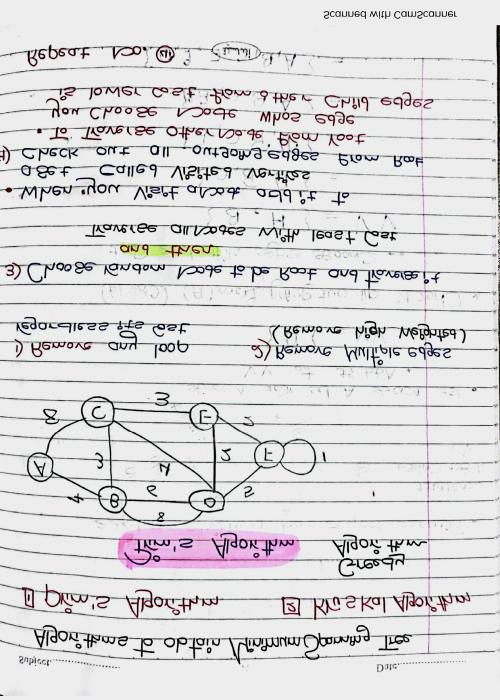 Subject Date
Algorithms to obtain Minimum Spanning Tree
1 Prim's Algorithm 2 Kruskal Algorithm
Greedy
Prim's Algorithm Algorithm
8
4 B 6 D 5
A 3 4 2 F 1
8 C 3 E 2
1) Remove any loop 2) Remove Multiple edges
regardless its Cost (Remove high Weighted)
3) Choose Random Node to be Root and Traverse it
and then
Traverse all Nodes with least Cost
• When you Visit a Node add it to
a Set Called Visited Vertices
4) Check out all outgoing edges From Root
• To Traverse other Node from root
you Choose Node Whos edge
is lower cost from other Child edges
Repeat No. 4
Scanned with CamScanner